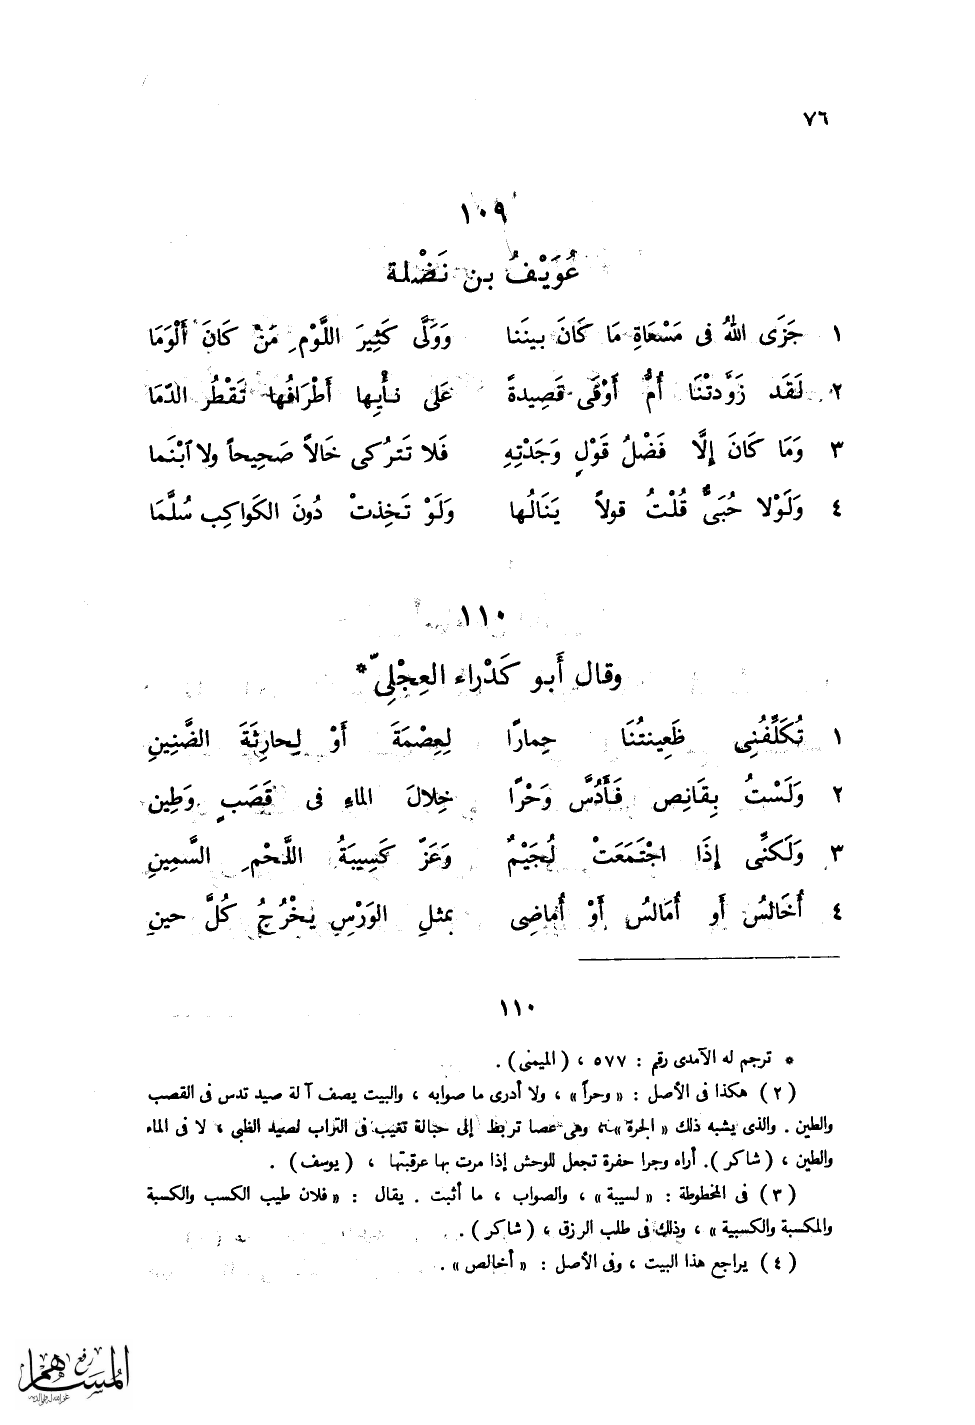 ٧٦
١٠٩
عُوَيْفُ بن نَضْلة
١ جَزَى اللهُ فى مَسْعَاةِ مَا كَانَ بينَنا وَوَلَّى كَثِيرَ اللَّوْمِ مَنْ كَانَ أَلْوَمَا
٢ لَقَد زَوَّدتْنَا أُمُّ أَوْفَى قَصِيدةً عَلى نأْيِها أَطْرَافُها تَقْطُر الدَّمَا
٣ وَمَا كَانَ إلَّا فَضْلُ قَوْلٍ وَجَدْتِهِ فَلا تَتركى خَالاً صَحِيحاً ولا ٱبْنَما
٤ وَلَوْلا حُبَىٌّ قُلْتُ قولاً يَنَالُها وَلَوْ تَخِذتْ دُونَ الكَواكِبِ سُلَّمَا
١١٠
وقال أَبو كَدْراء العِجْلِىّ *
١ تُكَلِّفُنِى ظَعِينتُنَا حِمارًا لِعِصْمَةَ أَوْ لِحارِثَةَ الضَّنِينِ
٢ وَلَسْتُ بِقَانِصٍ فَأَدُسَّ وَحْرًا خِلالَ الماءِ فى قَصَبٍ وَطِينِ
٣ وَلَكنِّى إِذَا اجْتَمَعَتْ لُجَيْمٌ وَعَزَّ كَسِيبَةُ اللَّحْمِ السَّمِينِ
٤ أُخَالسُ أَو أُمَالسُ أَوْ أُماضِى بمثلِ الوَرْسِ يَخْرُجُ كُلَّ حينِ
١١٠
* ترجم له الآمدى رقم : ٥٧٧ ، (الميمنى) .
(٢) هكذا فى الأصل : « وحراً » ، ولا أدرى ما صوابه ، والبيت يصف آلة صيد تدس فى القصب
والطين . والذى يشبه ذلك « الجرة » ، وهى عصا تربط إلى حبالة تغيب فى التراب لصيد الظبى ، لا فى الماء
والطين ، (شاكر). أراه وجرا حفرة تجعل للوحش إذا مرت بها عرقبتها ، (يوسف) .
(٣) فى المخطوطة : « لسيبة » ، والصواب ، ما أثبت . يقال : « فلان طيب الكسب والكسبة
والمكسبة والكسيبة » ، وذلك فى طلب الرزق ، (شاكر) .
(٤) يراجع هذا البيت ، وفى الأصل : « أخالص » .
رفع
المساهم